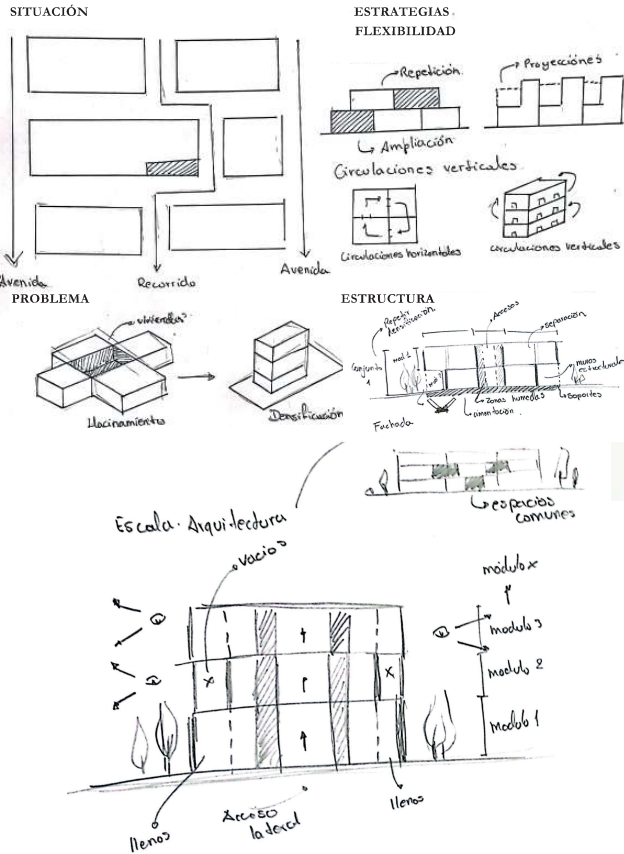 SITUACIÓN
Avenida
Recorrido
Avenida
ESTRATEGIAS
FLEXIBILIDAD
Repetición.
Proyecciones
Ampliación
Circulaciones verticales.
Circulaciones horizontales
circulaciones verticales
PROBLEMA
viviendas
Hacinamiento
Densificación
ESTRUCTURA
Repetir
densificación
Accesos
separación
Conjunto
1
mod. 2
mod 1
muros
estructurales
Zonas humedas
soportes
cimentación
Fachada
espacios
comunes
Escala. Arquitectura
vacios
modulo x
modulo 3
modulo 2
modulo 1
x
x
llenos
Acceso
lateral
llenos